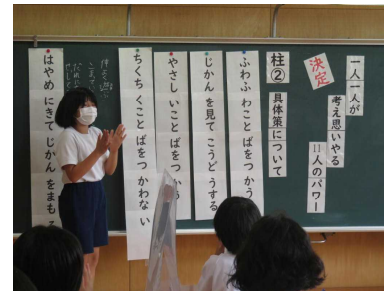 一人一人が
考え思いやる
11人のパワー
決定
柱②
具体策について
ふわふわことばをつかう
じかんを見てこうどうする
やさしいことばをつかう
ちくちくことばをつかわない
はやめにきてじかんをまも